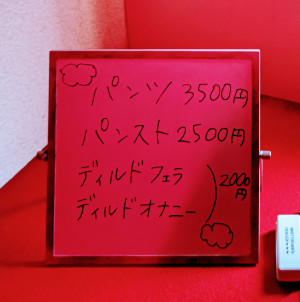 パンツ 3500円
パンスト 2500円
ディルドフェラ
ディルドオナニー
2000円